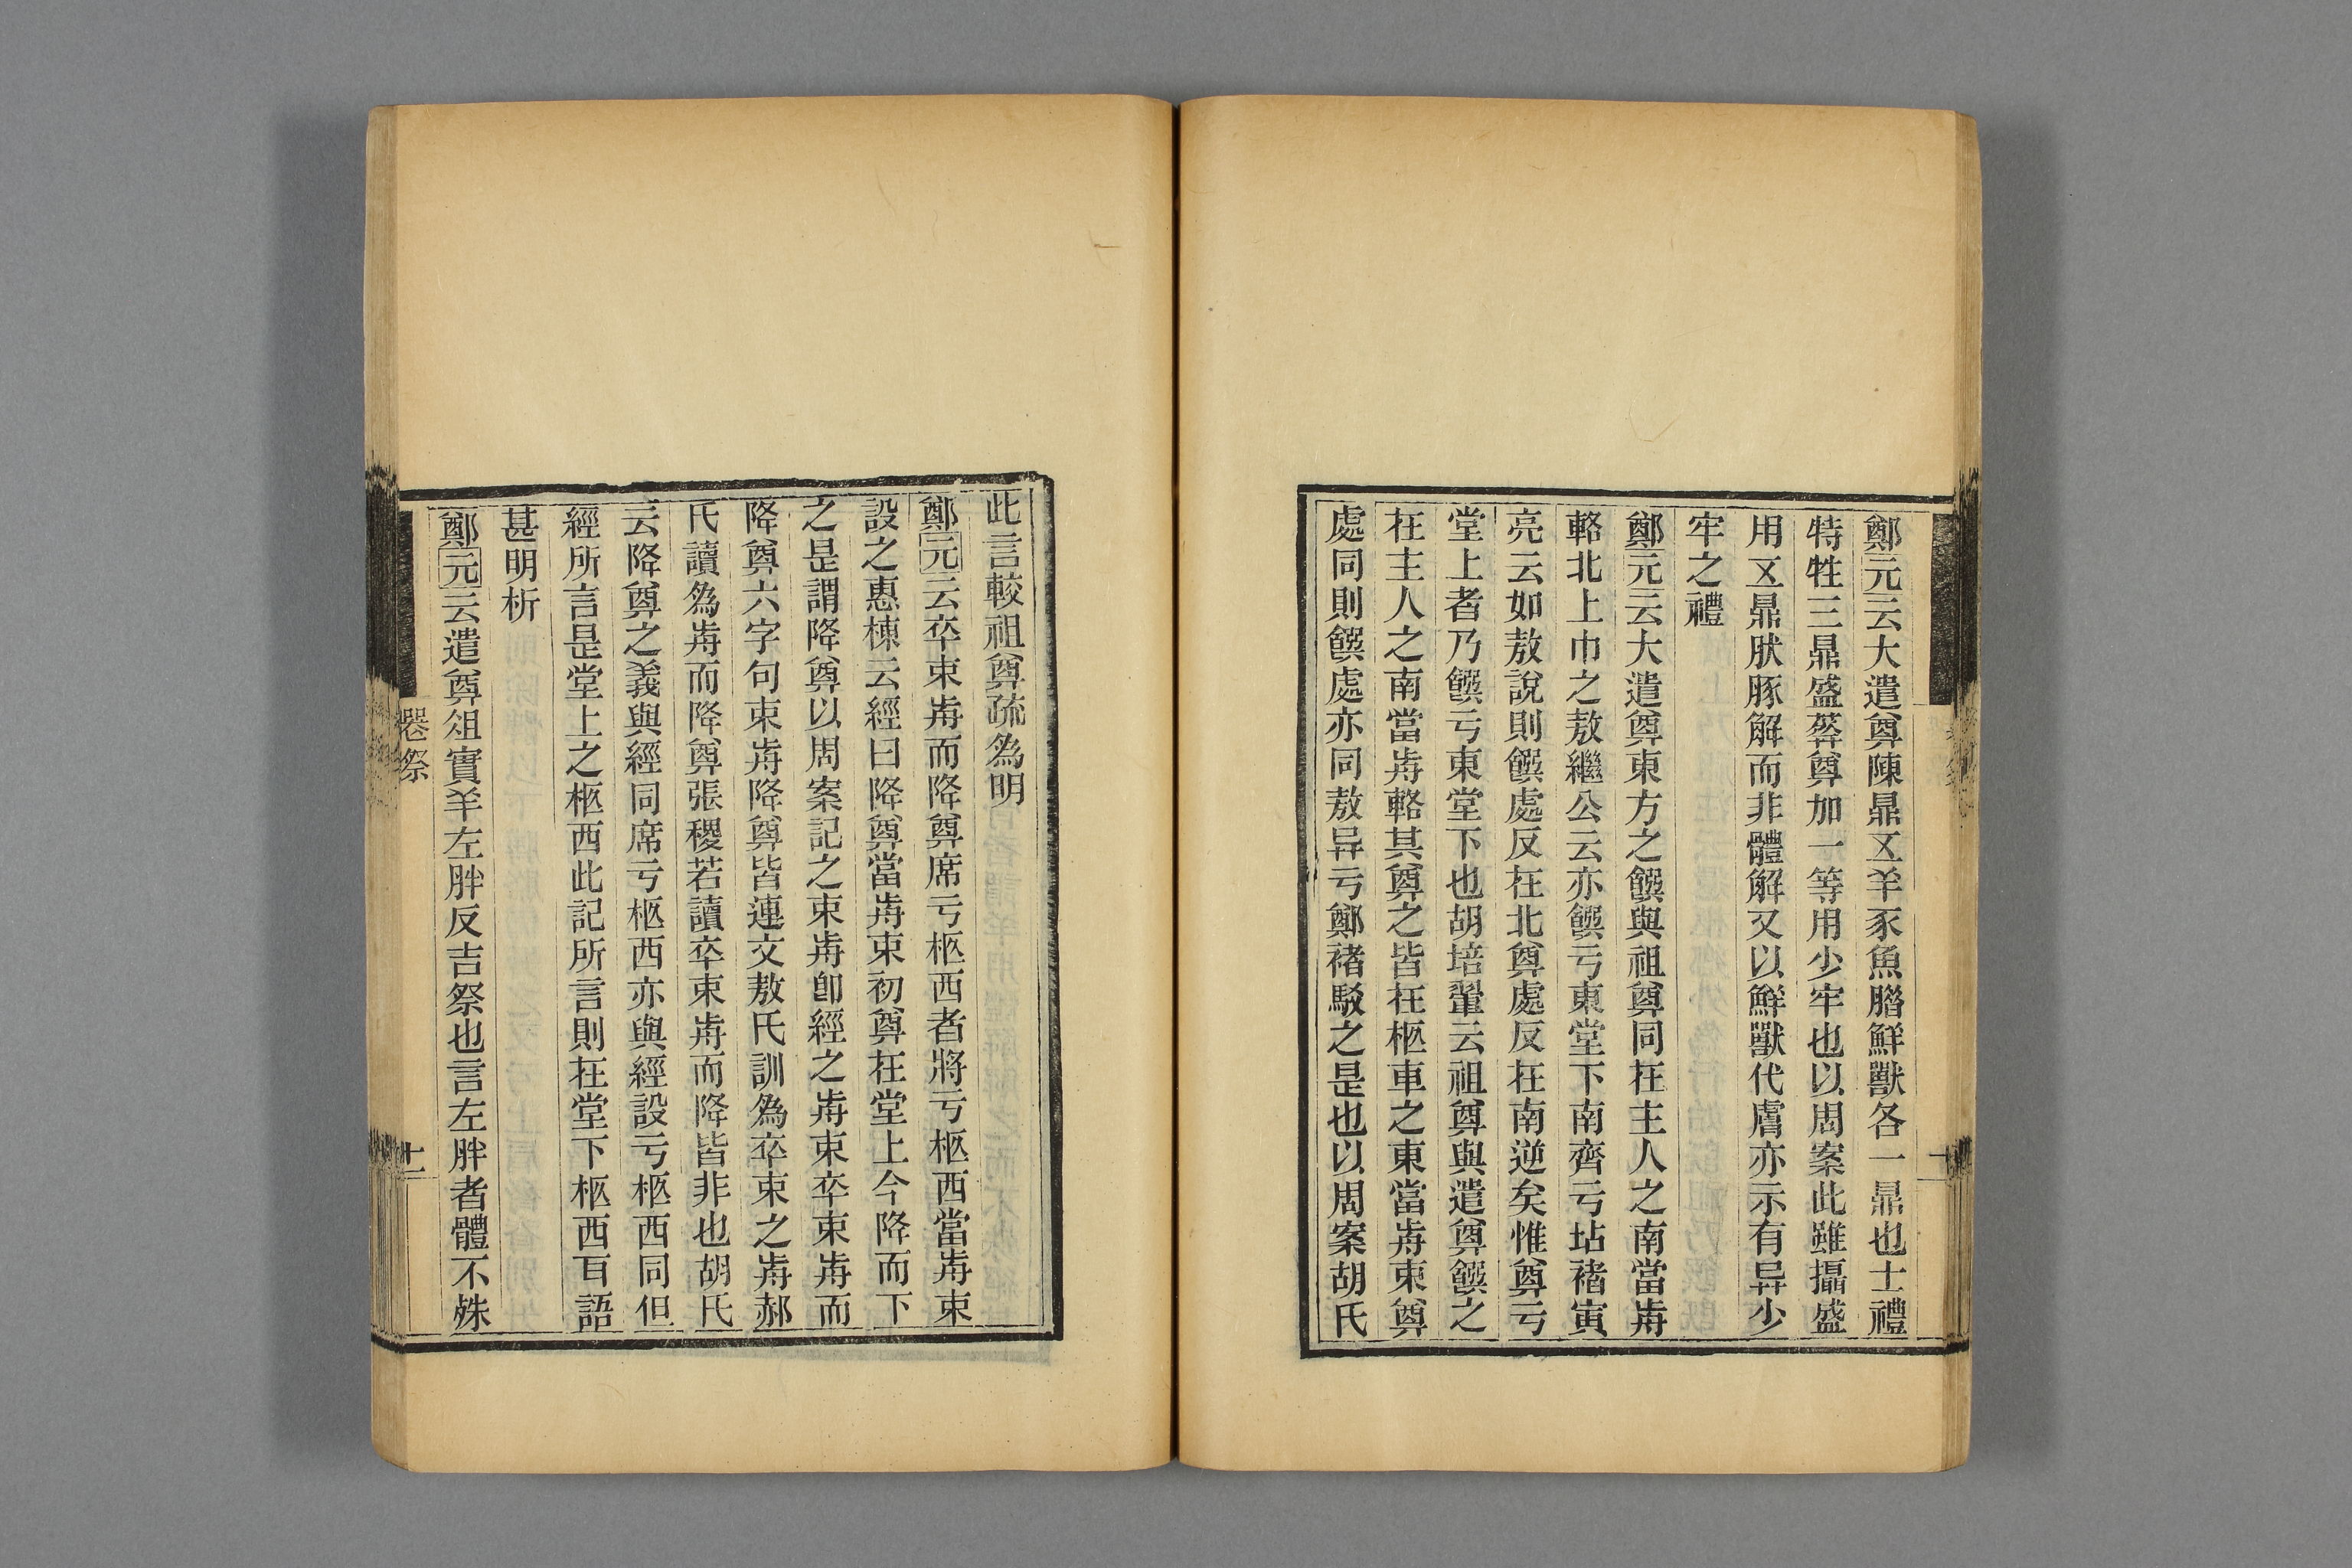 鄭元云大遣奠陳鼎㐅羊豕魚腊鮮獸各一鼎也士禮
特牲三鼎盛葬奠加一等用少牢也以周案此雖攝盛
用㐅鼎肰豚解而非體解又以鮮獸代膚亦示有异少
牢之禮
鄭元云大遣奠東方之饌與祖奠同在主人之南當歬
輅北上巾之敖繼公云亦饌亏東堂下南齊亏坫褚寅
亮云如敖說則饌處反在北奠處反在南逆矣惟奠亏
堂上者乃饌亏東堂下也胡培翬云祖奠與遣奠饌之
在主人之南當歬輅其奠之皆在柩車之東當歬束奠
處同則饌處亦同敖异亏鄭褚駁之是也以周案胡氏
此言較祖奠疏為明
鄭元云卒束歬而降奠席亏柩西者將亏柩西當歬束
設之惠棟云經曰降奠當歬束初奠在堂上今降而下
之是謂降奠以周案記之束歬卽經之歬束卒束歬而
降奠六字句束歬降奠皆連文敖氏訓為卒束之歬郝
氏讀為歬而降奠張稷若讀卒束歬而降皆非也胡氏
云降奠之義與經同席亏柩西亦與經設亏柩西同但
經所言是堂上之柩西此記所言則在堂下柩西百語
甚明析
鄭元云遣奠俎實羊左胖反吉祭也言左胖者體不殊
喪祭
十一